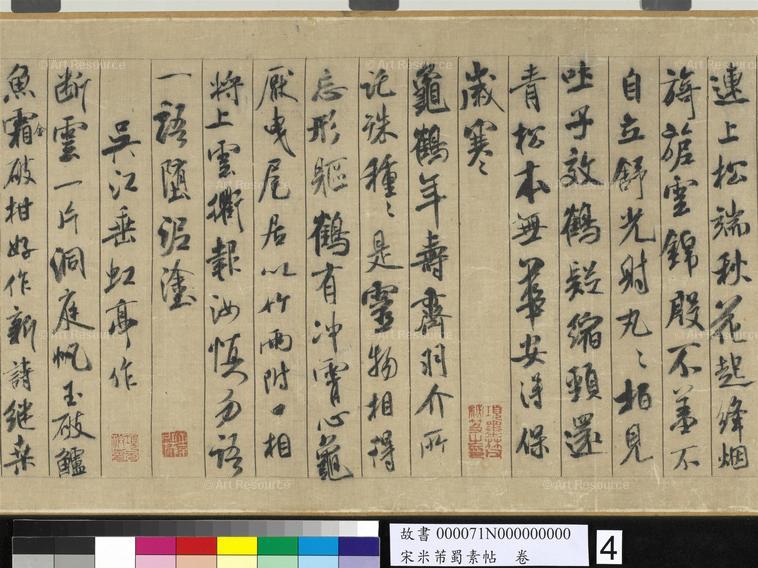 連上松端秋花起絳烟
旖旎雲錦殷不羞不
自立舒光射丸〻栢見
吐子效鶴疑縮頸還
青松本無華安得保
歲寒〻
龜鶴年壽齊羽介所
託殊種〻是靈物相得
忘形軀鶴有冲霄心龜
厭曳尾居以竹兩附口相
將上雲衢報汝慎勿語
一語墮泥塗
吳江垂虹亭作
断雲一片洞庭帆玉破鱸
魚霜金破柑好作新詩継桑
故書 000071N000000000
宋米芾蜀素帖 卷
4
© Art Resource